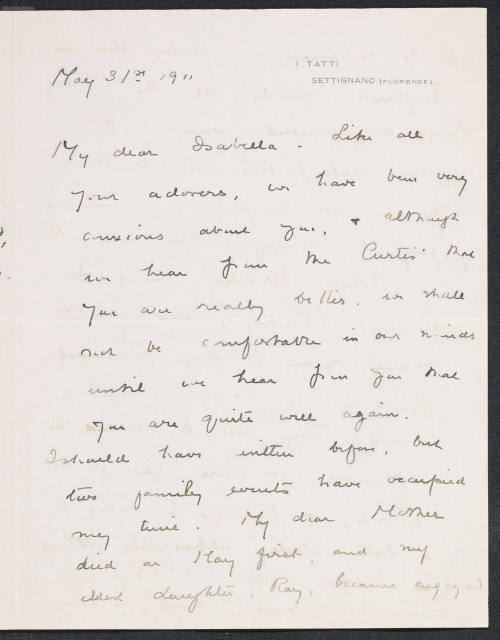 I TATTI
SETTIGNANO (FLORENCE)
May 31st 1911
My dear Isabella - Like all
your adorers, we have been very
anxious about you, & although
we hear from the Curtis' that
you are really better, we shall
not be comfortable in our minds
until we hear from you that
you are quite well again.
I should have written before, but
two family events have occupied
my time. My dear Mother
died on May first, and my
eldest daughter, Ray, became engaged